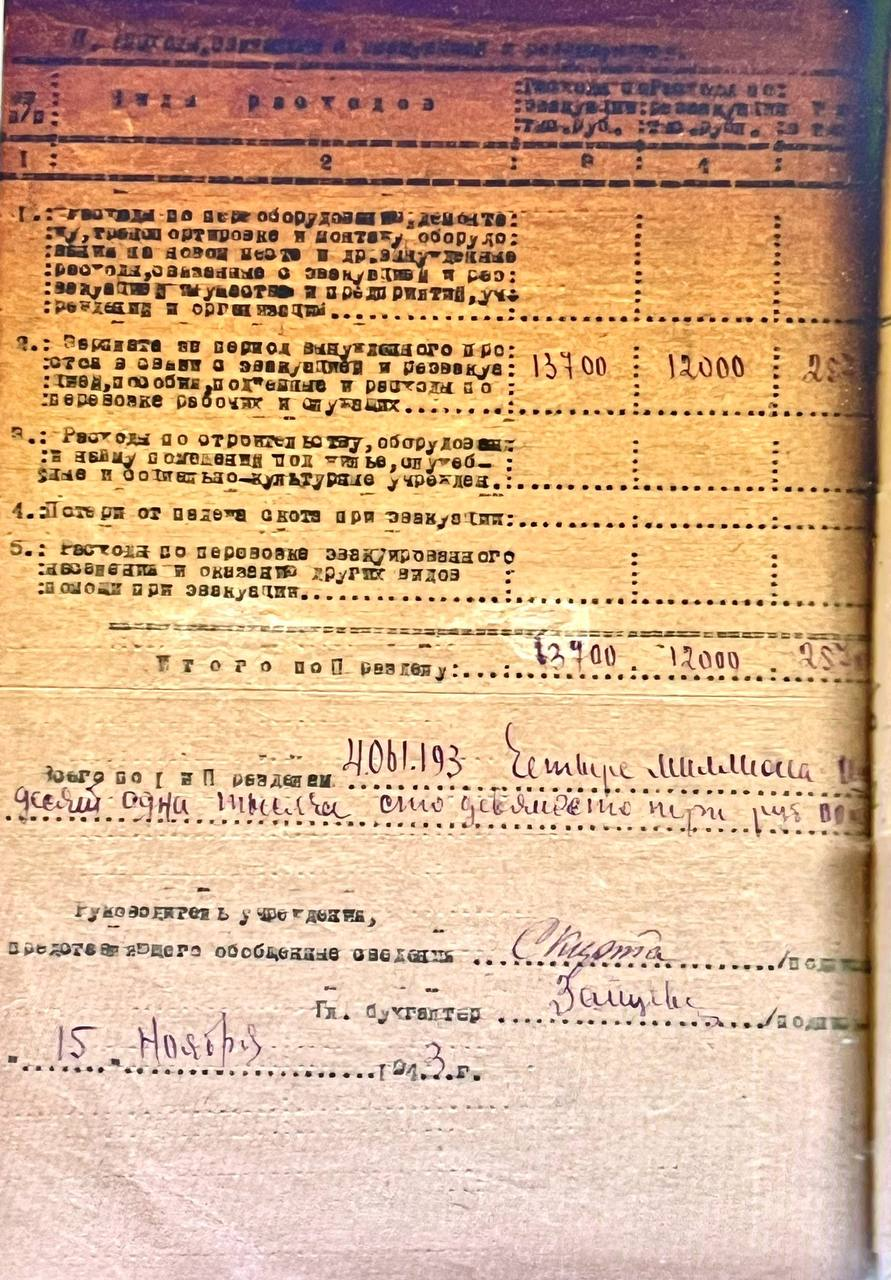 П. Расходы, связанные с эвакуацией и реэвакуацией.
№№ : Виды расходов : Расходы по : Расходы по :
п/п : эвакуации : реэвакуации
тыс.руб. : тыс.рубл. :
1 : 2 : 3 : 4 :
1.: Расходы по переоборудованию, демонта
жу, транспортировке и монтажу оборудо
вания на новом месте и др. вынужденные
расходы, связанные с эвакуацией и реэ
вакуацией имущества и предприятий, уч-
реждений и организаций
2.: Зарплата за период вынужденного про
стоя в связи с эвакуацией и реэвакуа : 13700 : 12000 : 25
цией, пособия, под'емные и расходы по
перевозке рабочих и служащих
3.: Расходы по строительству, оборудован
и найму помещений под жилье, служеб-
ные и социально-культурные учрежден.
4.: Потери от падежа скота при эвакуации:
5.: Расходы по перевозке эвакуированного
населения и оказанию других видов
помощи при эвакуации
Итого по П разделу: 13700 . 12000 . 257
Всего по I и П разделам 4.061.193 Четыре миллиона
десят одна тысяча сто девяносто три руб
Руководитель учреждения,
представляющего обобщенные сведения /подпи
Гл. бухгалтер /подпи
"15" Ноября 1943 г.